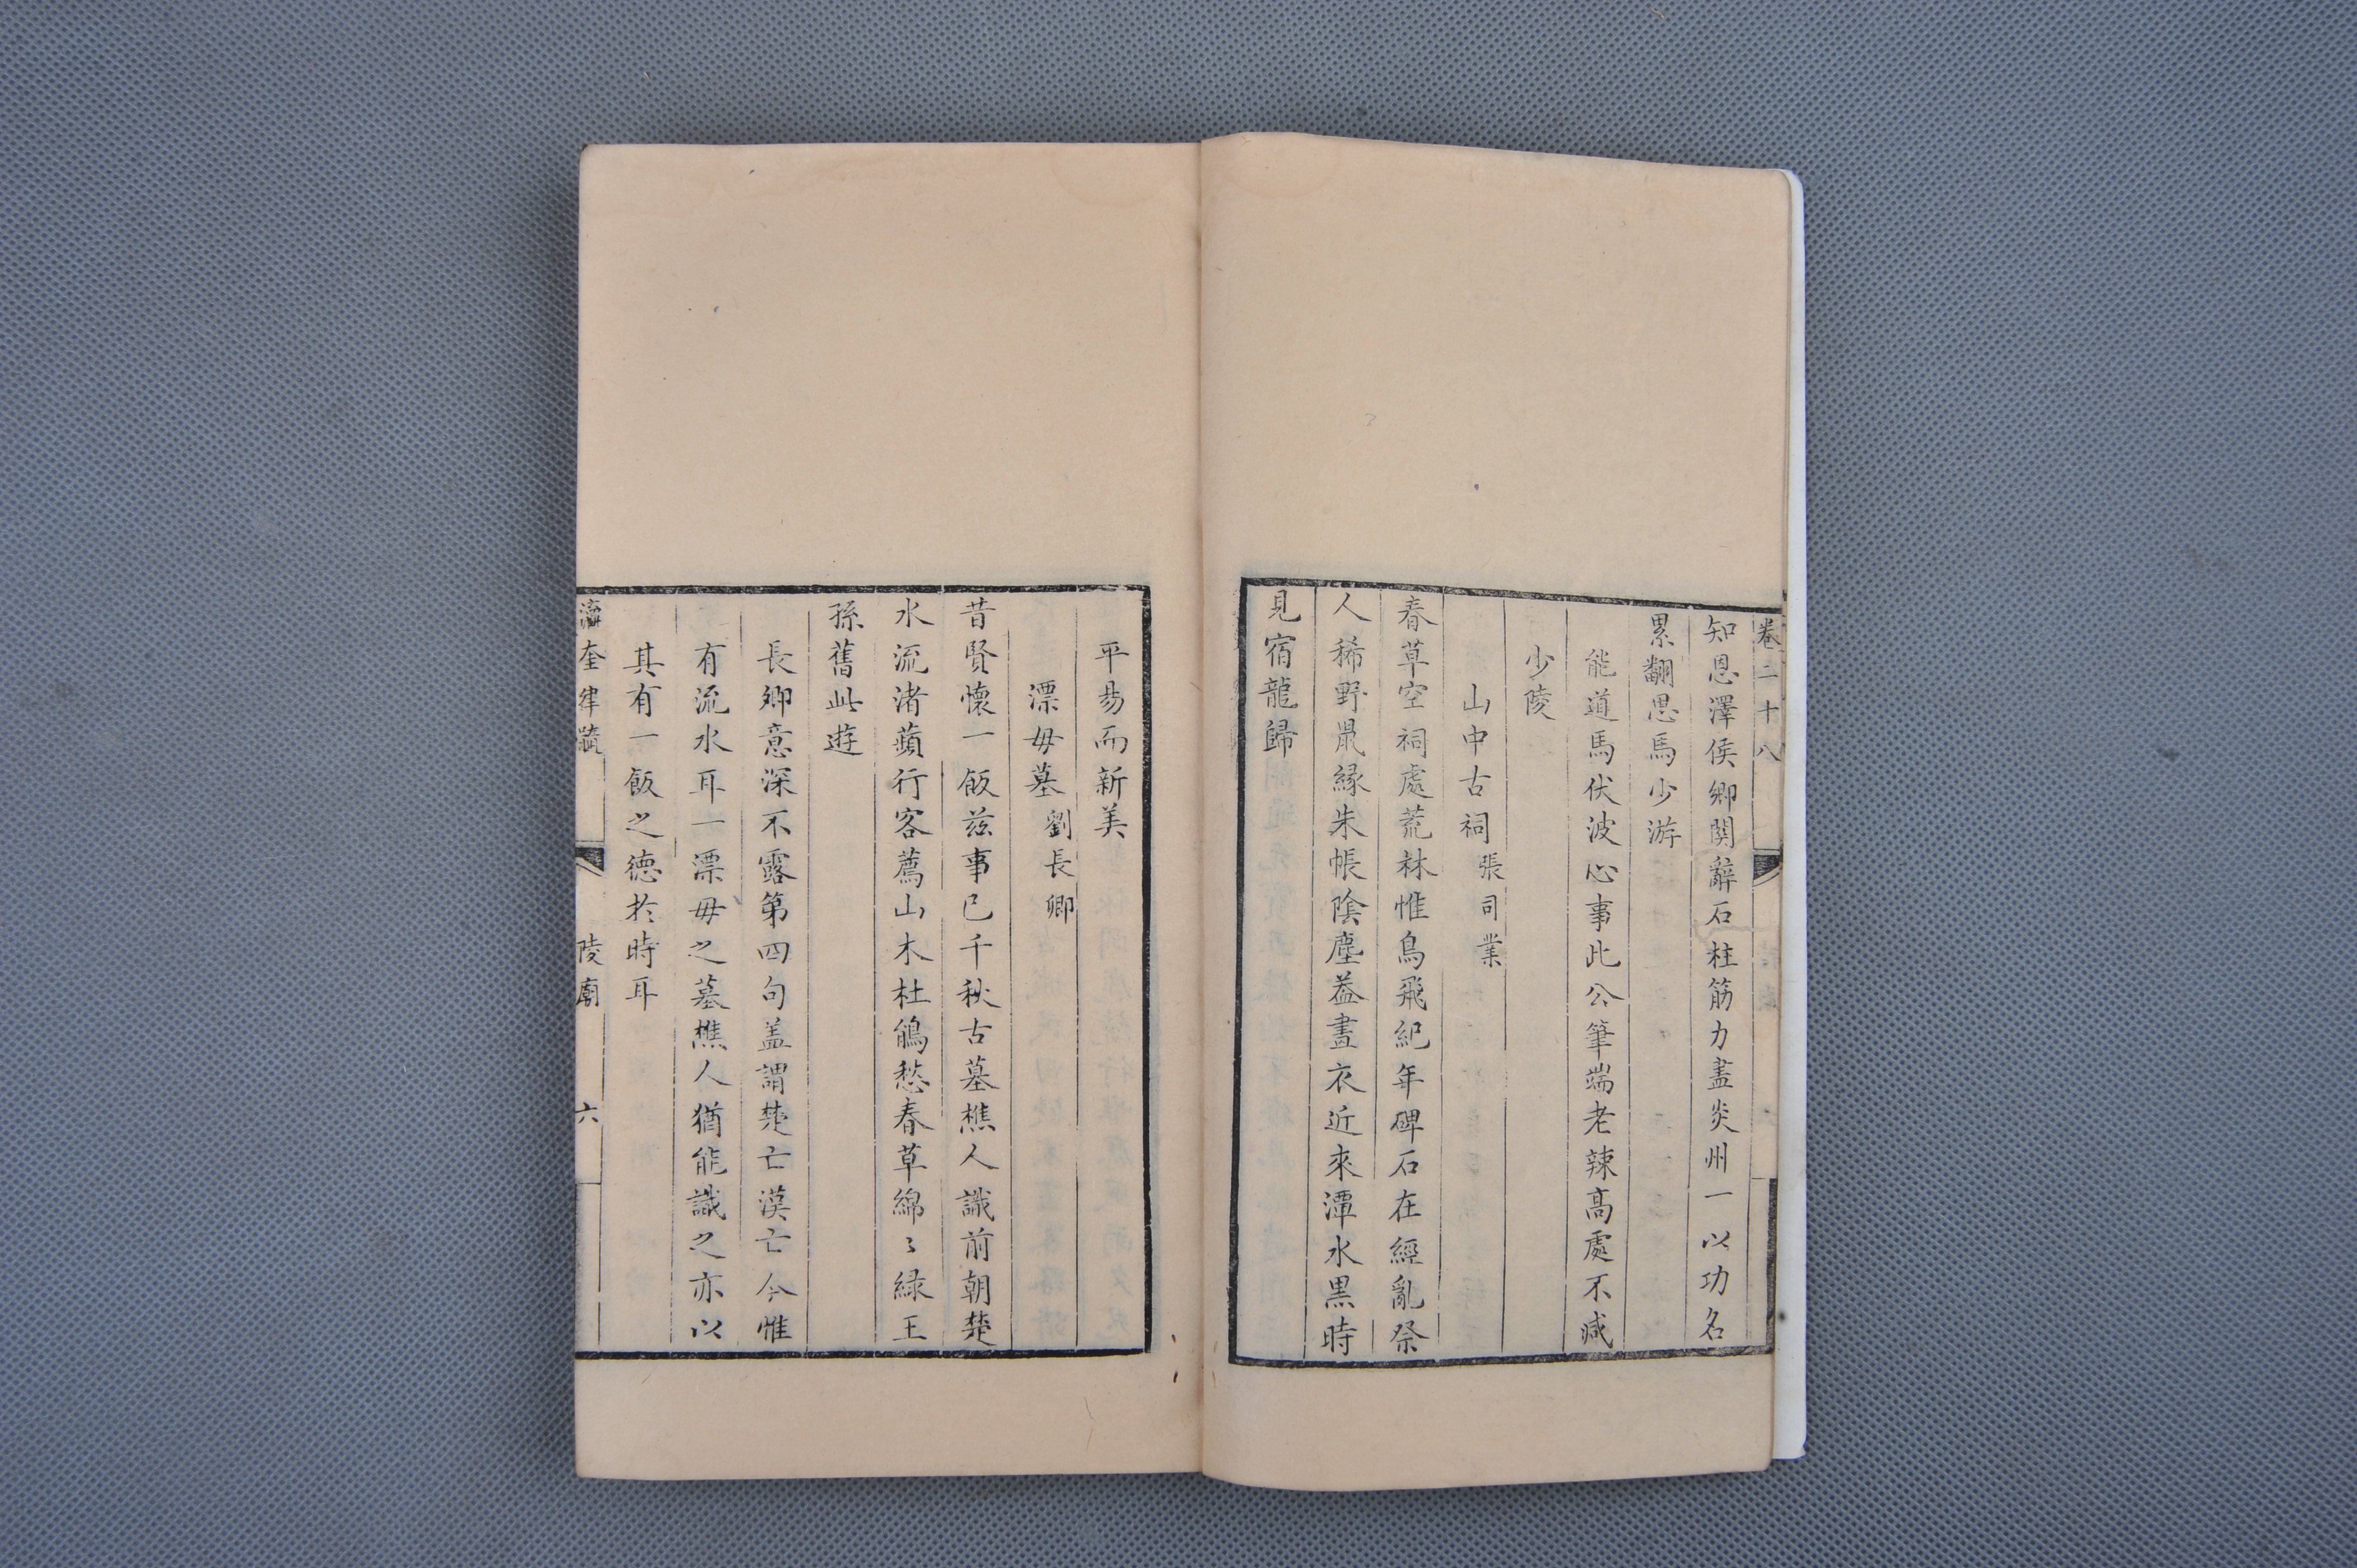 卷二十八
知恩澤侯鄉關辭石柱筋力盡炎州一以功名
累翻思馬少游
能道馬伏波心事此公筆端老辣高處不减
少陵
山中古祠 張司業
春草空祠處荒林惟鳥飛紀年碑石在經亂祭
人稀野鼠緣朱帳陰塵葢畫衣近來潭水黒時
見宿龍歸
平易而新美
漂毋墓 劉長卿
昔賢懷一飯兹事已千秋古墓樵人識前朝楚
水流渚蘋行客薦山木杜鵑愁春草綿〻緑王
孫舊此遊
長卿意深不露第四句盖謂楚亡漢亡今惟
有流水耳一漂毋之墓樵人猶能識之亦以
其有一飯之德於時耳
瀛奎律髓
陵廟
六